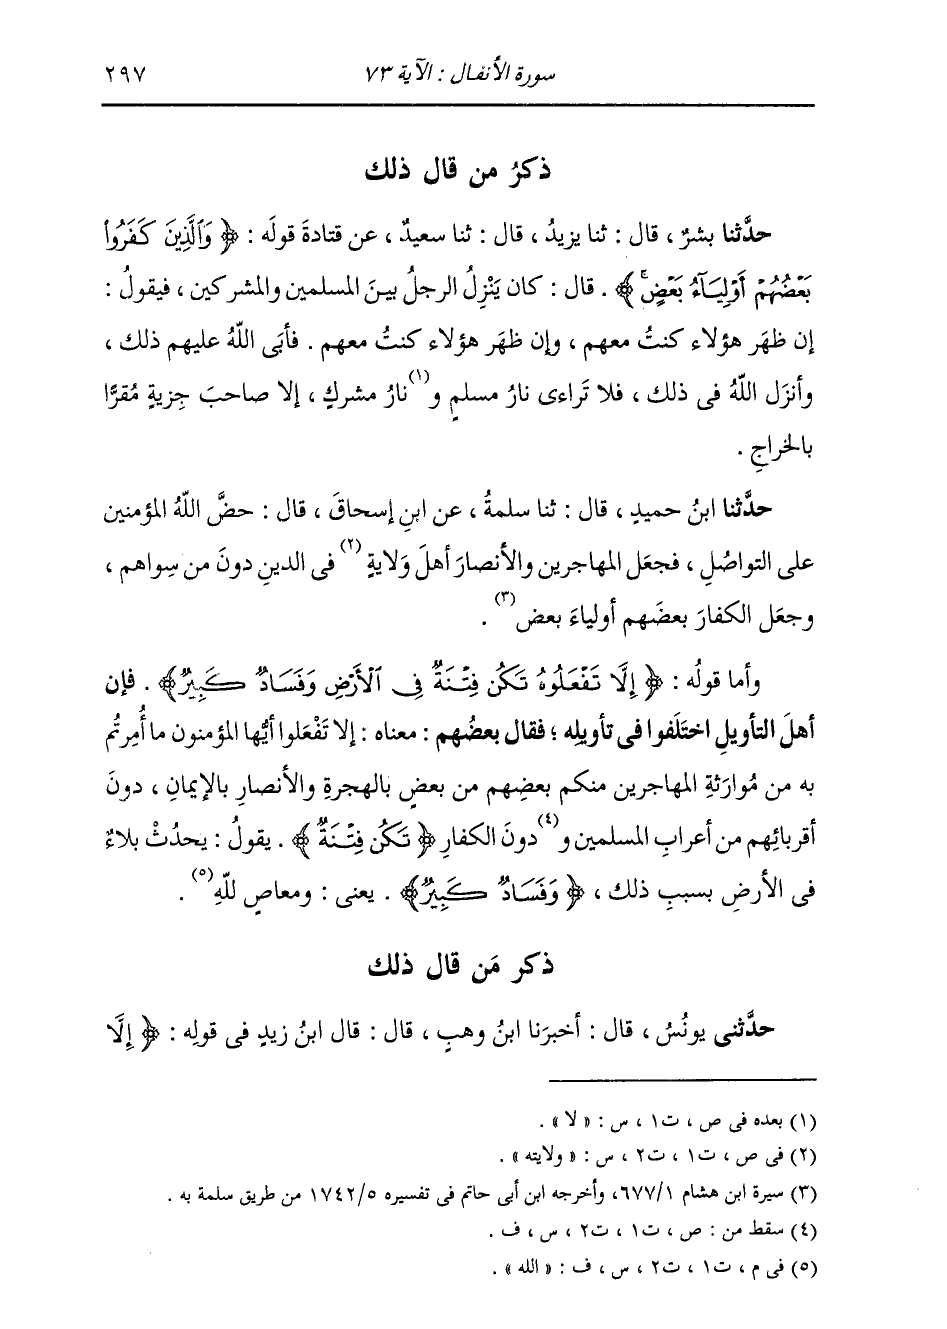 سورة الأنفال : الآية ٧٣ ٢٩٧
ذكرُ من قال ذلك
حدَّثنا بشرٌ ، قال : ثنا يزيدُ ، قال : ثنا سعيدٌ ، عن قتادةَ قولَه : ﴿ وَٱلَّذِينَ كَفَرُواْ
بَعۡضُهُمۡ أَوۡلِيَآءُ بَعۡضٍۚ ﴾ . قال : كان يَنْزِلُ الرجلُ بينَ المسلمين والمشركين ، فيقولُ :
إن ظهَر هؤلاء كنتُ معهم ، وإن ظهَر هؤلاء كنتُ معهم . فأبَى اللَّهُ عليهم ذلك ،
وأنزَل اللَّهُ فى ذلك ، فلا تَراءى نارُ مسلمٍ و(١)نارُ مشركٍ ، إلا صاحبَ جِزيةٍ مُقرًّا
بالخراجِ .
حدَّثنا ابنُ حميدٍ ، قال : ثنا سلمةُ ، عن ابنِ إسحاقَ ، قال : حضَّ اللَّهُ المؤمنين
على التواصُلِ ، فجعَل المهاجرين والأنصارَ أهلَ وَلايةٍ(٢) فى الدينِ دونَ من سِواهم ،
وجعَل الكفارَ بعضَهم أولياءَ بعضٍ(٣) .
وأما قولُه : ﴿ إِلَّا تَفۡعَلُوهُ تَكُن فِتۡنَةٌ فِى ٱلۡأَرۡضِ وَفَسَادٌ كَبِيرٌ ﴾ . فإن
أهلَ التأويلِ اختَلَفوا فى تأويلِه ؛ فقال بعضُهم : معناه : إلا تَفْعَلوا أيُّها المؤمنون ما أُمِرتُم
به من مُوارَثةِ المهاجرين منكم بعضِهم من بعضٍ بالهجرةِ والأنصارِ بالإيمانِ ، دونَ
أقربائِهم من أعرابِ المسلمين و(٤)دونَ الكفارِ ﴿ تَكُن فِتۡنَةٌ ﴾ . يقولُ : يحدُثْ بلاءٌ
فى الأرضِ بسببِ ذلك ، ﴿ وَفَسَادٌ كَبِيرٌ ﴾ . يعنى : ومعاصٍ للَّهِ(٥) .
ذكر مَن قال ذلك
حدَّثنى يونُسُ ، قال : أخبرَنا ابنُ وهبٍ ، قال : قال ابنُ زيدٍ فى قولِه : ﴿ إِلَّا
(١) بعده فى ص ، ت١ ، س : « لا » .
(٢) فى ص ، ت١ ، ت٢ ، س : « ولايته » .
(٣) سيرة ابن هشام ٦٧٧/١، وأخرجه ابن أبى حاتم فى تفسيره ١٧٤٢/٥ من طريق سلمة به .
(٤) سقط من : ص ، ت١ ، ت٢ ، س ، ف .
(٥) فى م ، ت١ ، ت٢ ، س ، ف : « الله » .